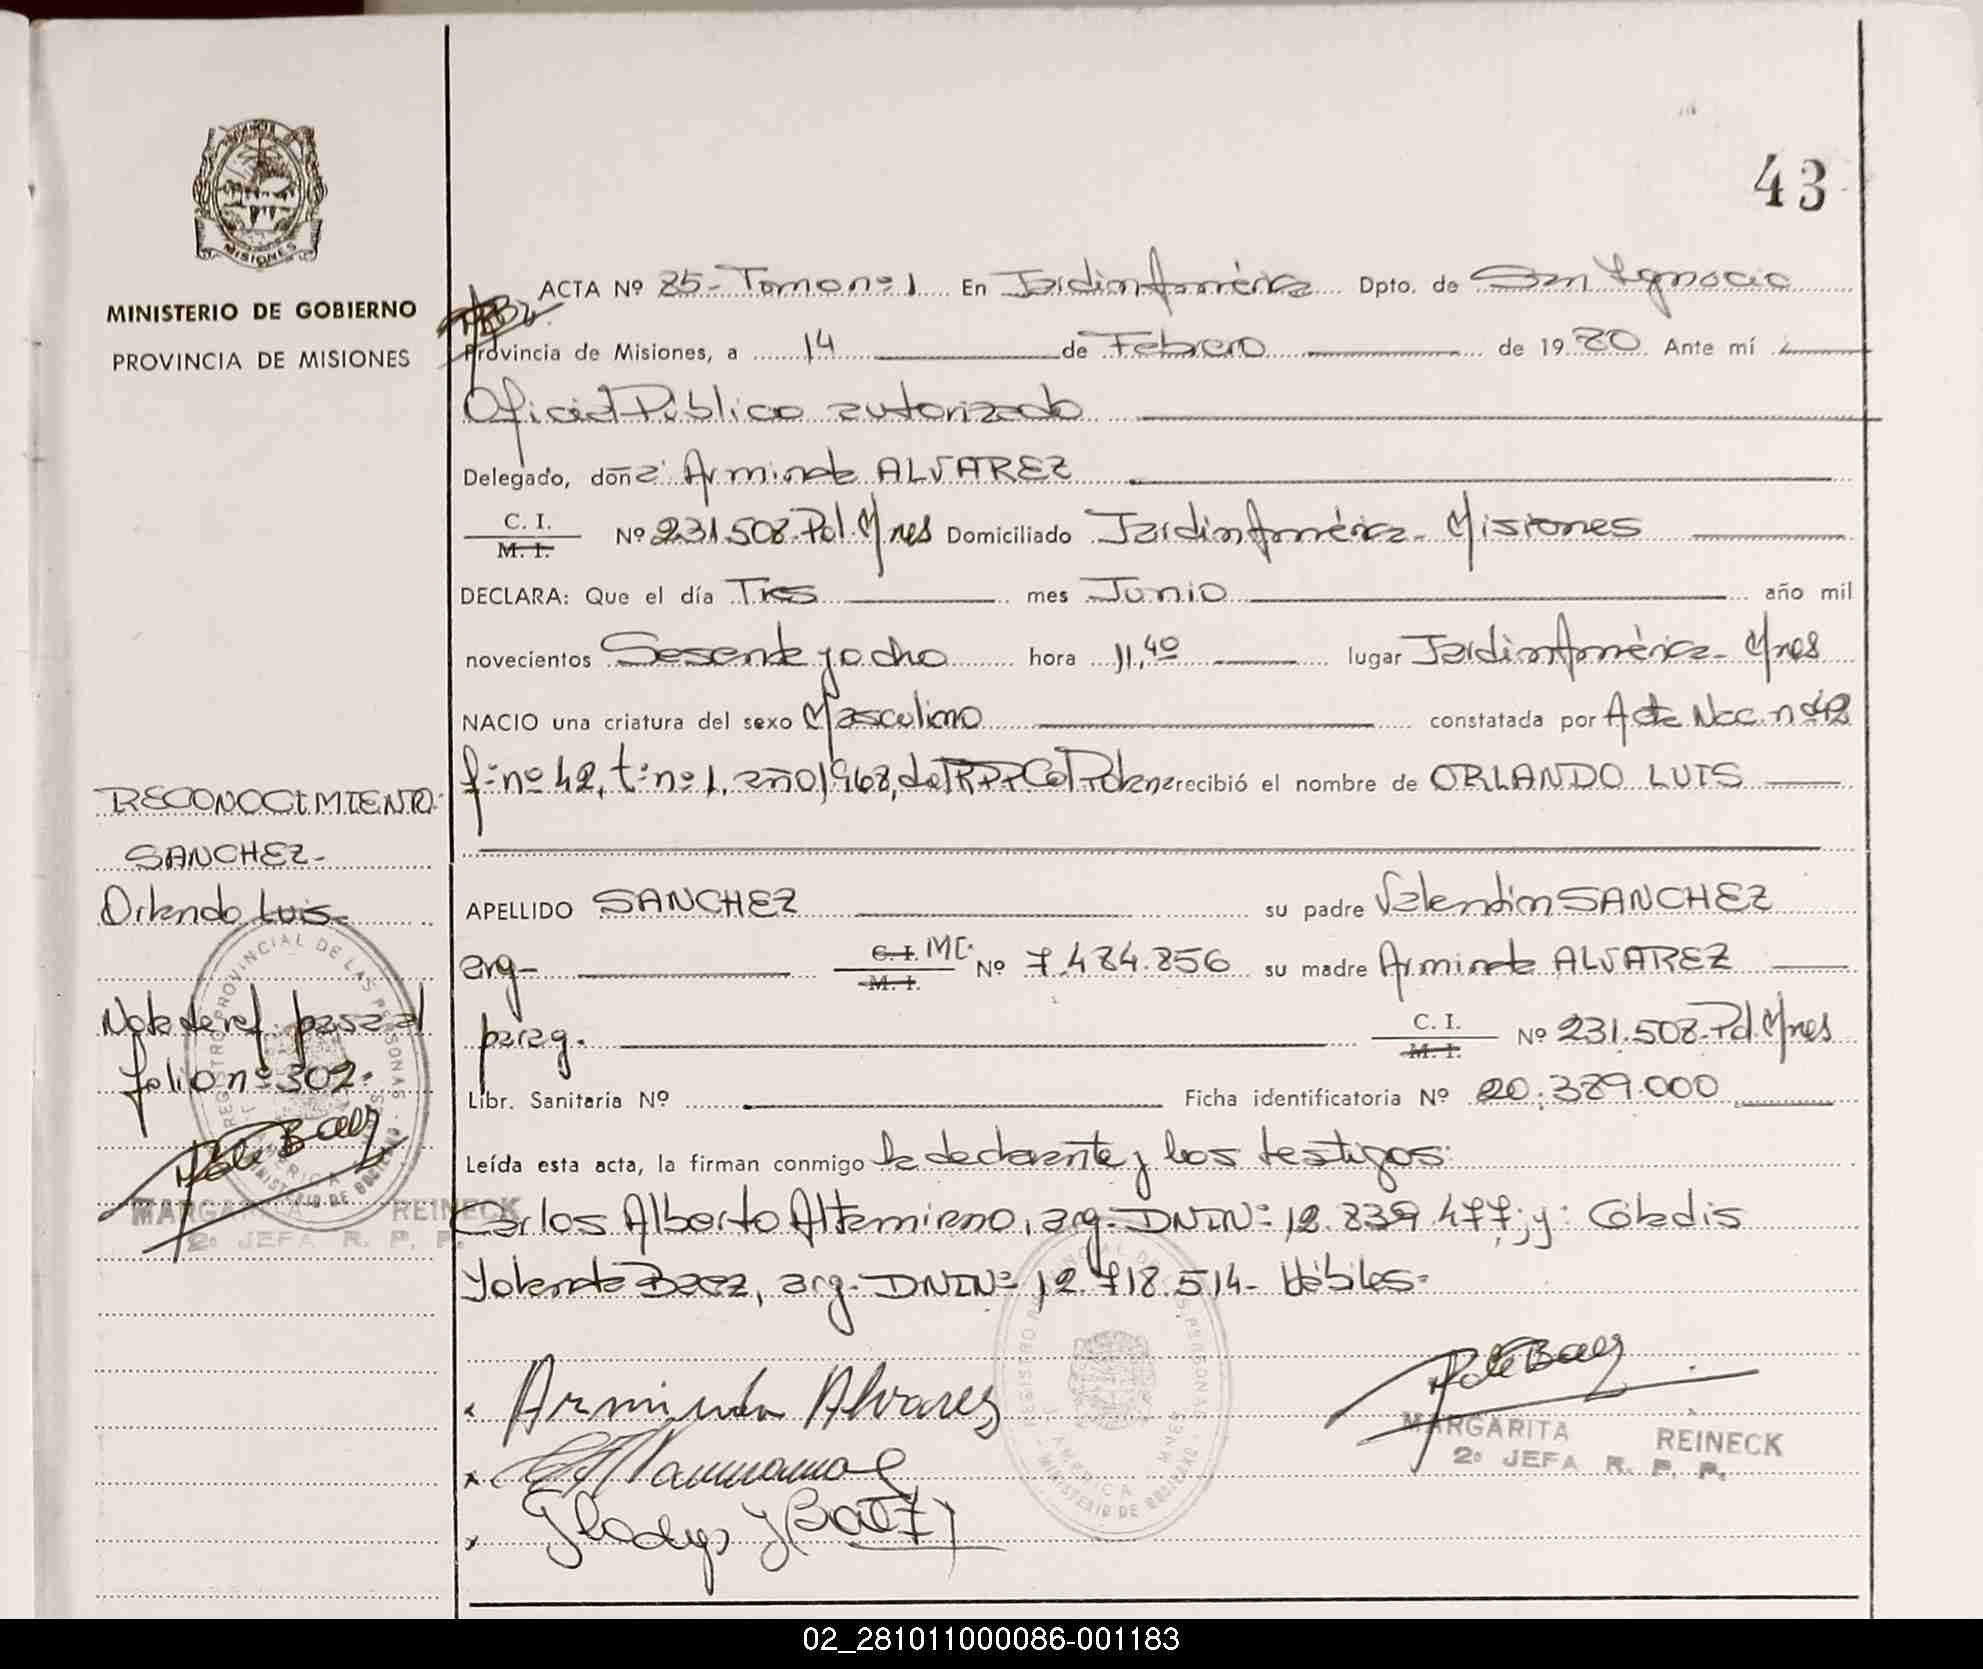 43
ACTA Nº 85 - Tomo nº 1 En Jardin América Dpto. de San Ignacio
MINISTERIO DE GOBIERNO
PROVINCIA DE MISIONES
MISIONES
Provincia de Misiones, a 14 de Febrero de 1980 Ante mí
Oficial Público autorizado
Delegado, doña Arminda ALVAREZ
C. I. M. I. Nº 231.508. Pol. Mnes Domiciliado Jardin América - Misiones
DECLARA: Que el día Tres mes Junio año mil
novecientos Sesenta y ocho hora 11,40 lugar Jardin América - Mnes
NACIO una criatura del sexo Masculino constatada por Acta Nac. nº 42
fº nº 42, tº nº 1, año 1968, recibió el nombre de ORLANDO LUIS
RECONOCIMIENTO:
SANCHEZ -
Orlando Luis -
APELLIDO SANCHEZ su padre Valentin SANCHEZ
arg - C. I. M. I. Nº 7.484.856 su madre Arminda ALVAREZ
parag. C. I. M. I. Nº 231.508. Pol. Mnes
Libr. Sanitaria Nº Ficha identificatoria Nº 20.389.000
Nota de ref. pasa al
folio nº 302.
Leída esta acta, la firman conmigo la declarante y los testigos:
Carlos Alberto Altamirano, arg. DNI Nº 12.839.477; y: Gladis
Yolanda Baez, arg. DNI Nº 12.718.514 - Hábiles -
R de Baez
MARGARITA REINECK
2º JEFA R. P. P.
REGISTRO PROVINCIAL DE LAS PERSONAS
MINISTERIO DE GOBIERNO
Arminda Alvarez
Gladys Y Baez
R de Baez
MARGARITA REINECK
2º JEFA R. P. P.
REGISTRO PROVINCIAL DE LAS PERSONAS
AMERICA MNES
MINISTERIO DE GOBIERNO
02_281011000086-001183